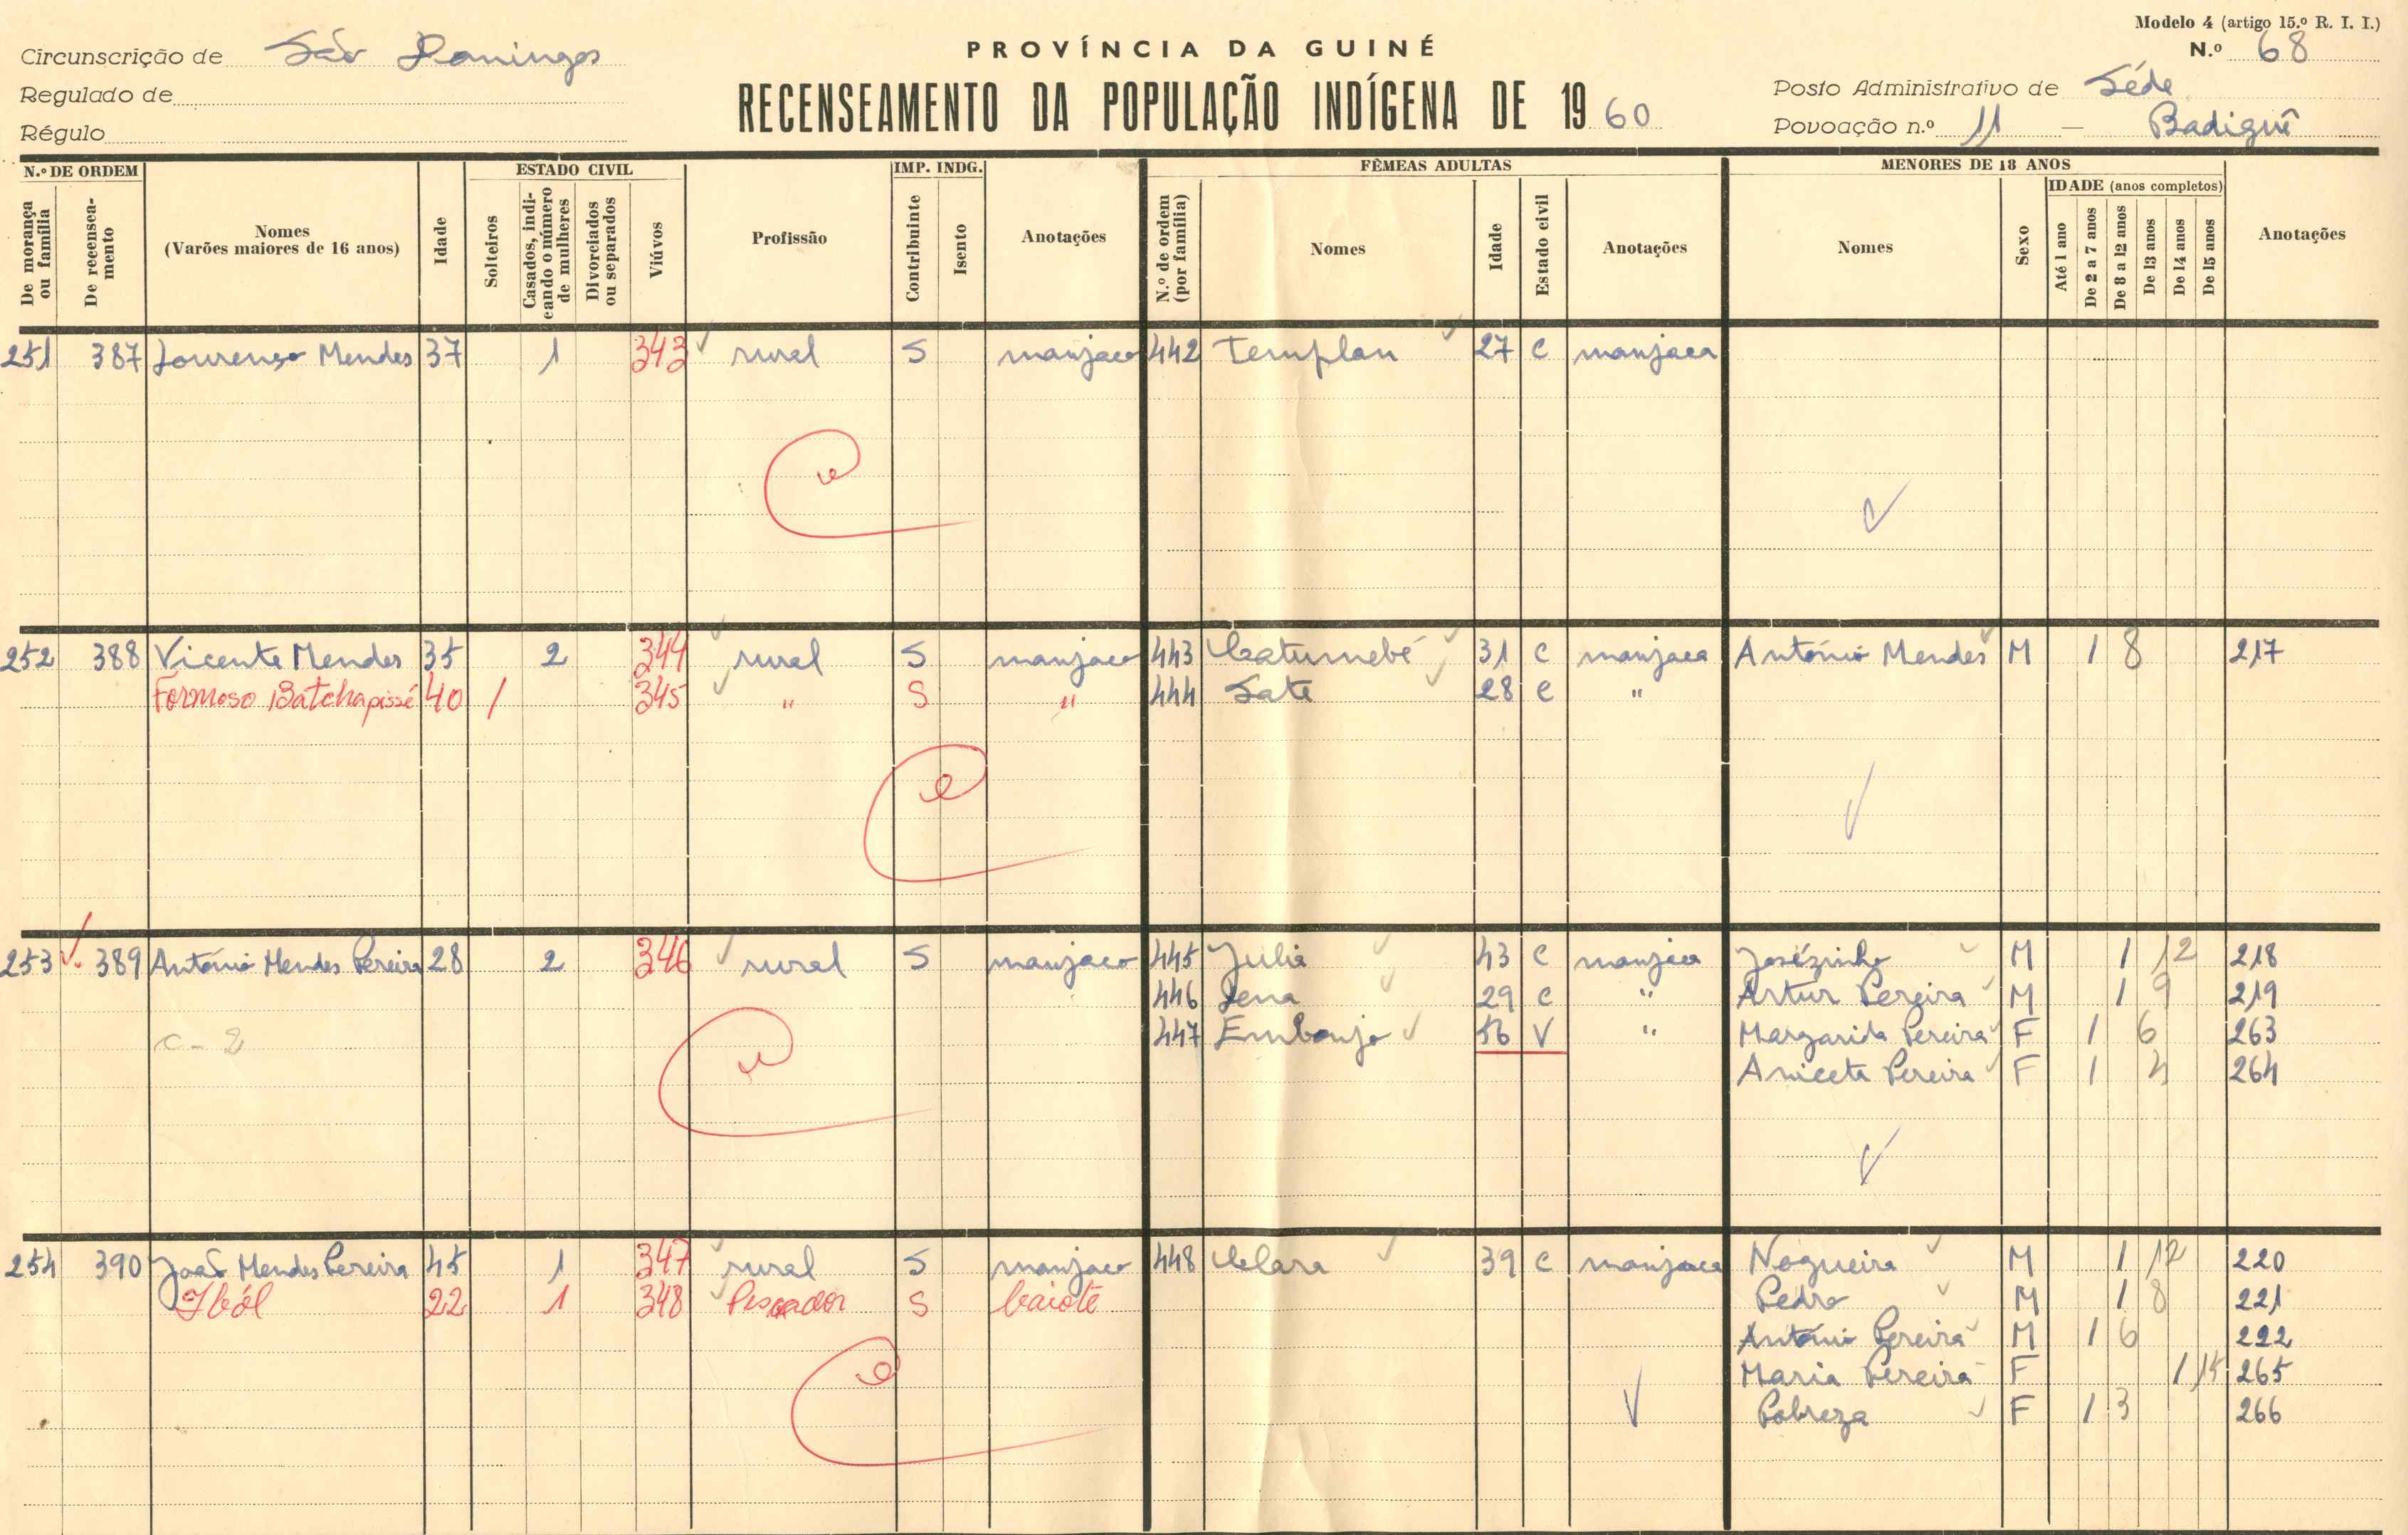 Modelo 4 (artigo 15.º R. I. I.)
Circunscrição de São Domingos
PROVÍNCIA DA GUINÉ
N.º 68
Regulado de
RECENSEAMENTO DA POPULAÇÃO INDÍGENA DE 1960
Posto Administrativo de Séde
Régulo
Povoação n.º 11 — Badiguê
N.º DE ORDEM
De morança ou família
De recenseamento
Nomes
(Varões maiores de 16 anos)
Idade
ESTADO CIVIL
Solteiros
Casados, indicando o número de mulheres
Divorciados ou separados
Viúvos
Profissão
IMP. INDG.
Contribuinte
Isento
Anotações
FÊMEAS ADULTAS
N.º de ordem (por família)
Nomes
Idade
Estado civil
Anotações
MENORES DE 18 ANOS
Nomes
Sexo
IDADE (anos completos)
Até 1 ano
De 2 a 7 anos
De 8 a 12 anos
De 13 anos
De 14 anos
De 15 anos
Anotações
251 387 Lourenço Mendes 37 1 343 rural S manjaco 442 Templan 27 C manjaca
252 388 Vicente Mendes 35 2 344 rural S manjaco 443 Catumebé 31 C manjaca António Mendes M 1 8 217
Formoso Batchapissé 40 / 345 " S " 444 Sate 28 C "
253 389 António Mendes Pereira 28 2 346 rural S manjaco 445 Julia 43 C manjaca Josézinho M 1 12 218
446 Jena 29 C " Artur Pereira M 1 9 219
C - 2 447 Embonjo 56 V " Margarida Pereira F 1 6 263
Aniceta Pereira F 1 264
254 390 João Mendes Pereira 45 1 347 rural S manjaco 448 Clara 39 C manjaca Nogueira M 1 12 220
Iból 22 1 348 Pescador S baiote Pedro M 1 8 221
António Pereira M 1 6 222
Maria Pereira F 1 15 265
Pobreza F 1 3 266